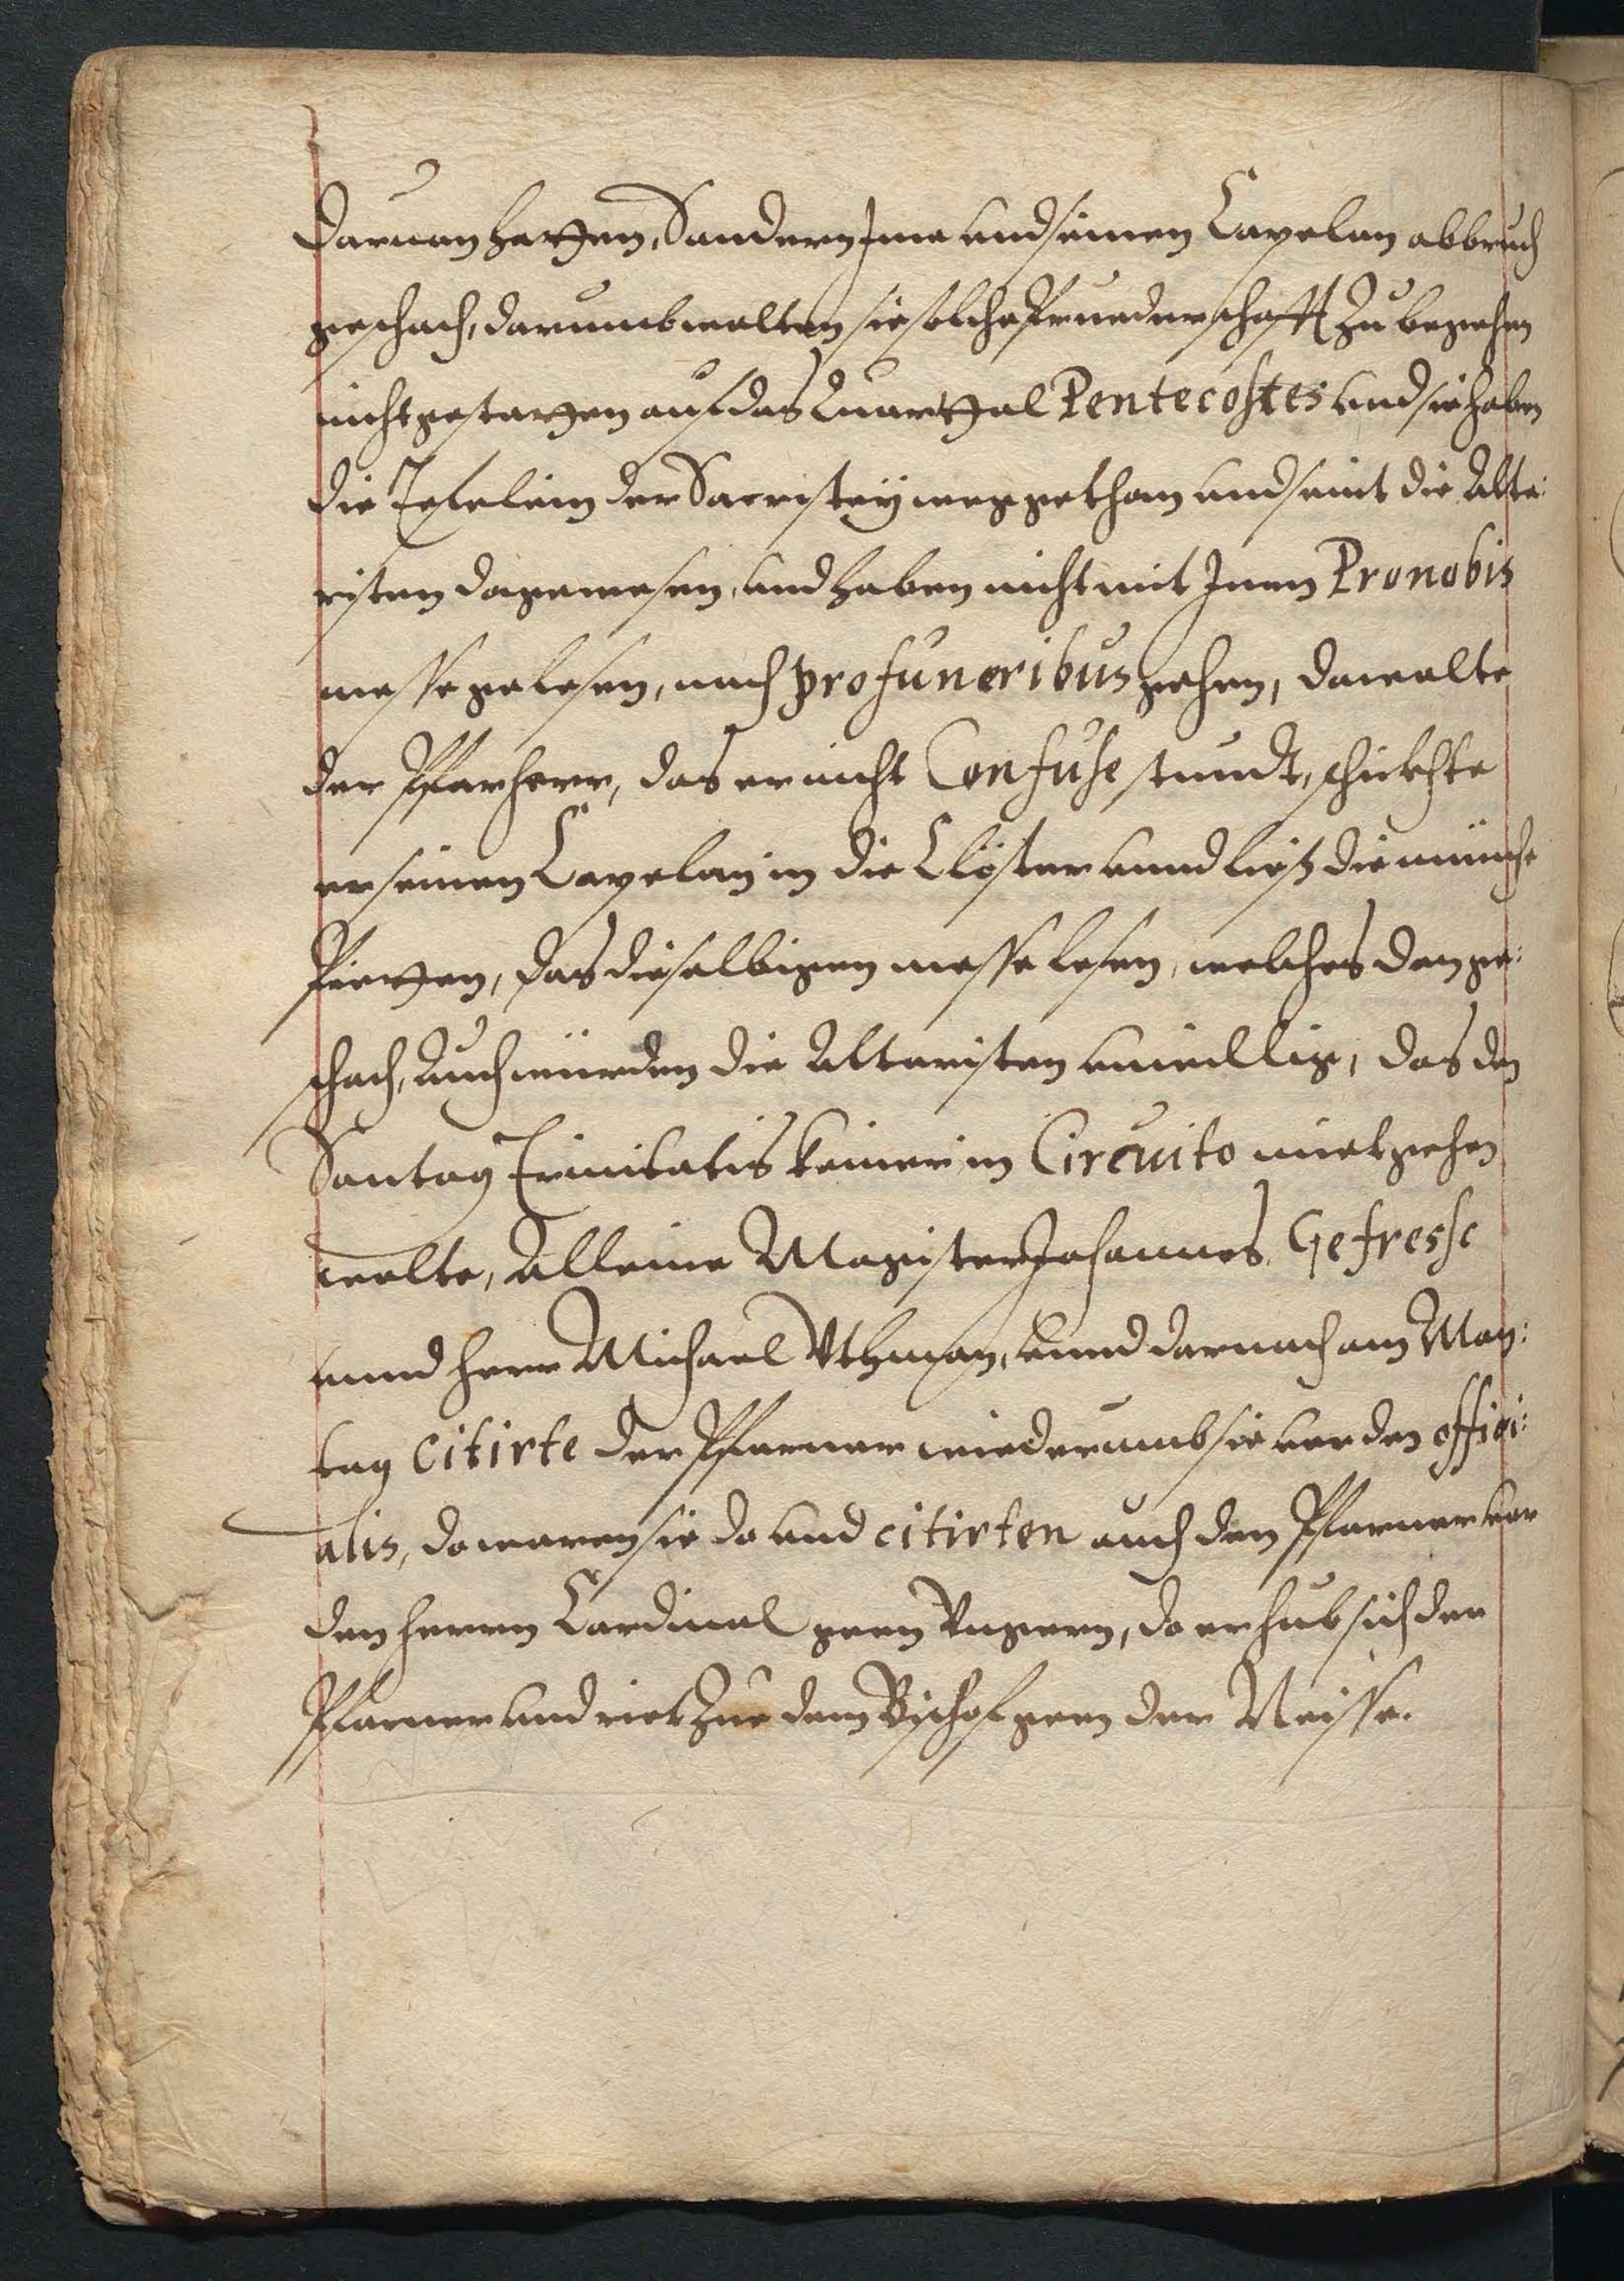 daruon hetten, Sondern Jme und seinen Capelan abbruch
geschach, darumb wolten sie solche Bruederschafft zu begehen
nicht gestatten auf das Quarttal Pentecostes und sie haben
die Tefelein der Sacristey weggethan und seint die Alta:
risten dagewesen, und haben nicht mit Jnen Pronobis
messe gelesen, noch pro funeribus gehen, da wolte
der Pfarherr, das er nicht Confuse stundt, schickhte
er seinen Capelan in die Clöster unnd ließ die münche
bietten, das dieselbigen messe lesen, welches dan ge:
schach, Auch würden die Altaristen unwillig, das den
Sontag Trinitatis keiner in Circuito miet gehen
wolte, Alleine Magister Johannes Gefresse
unnd herr Michael Uthman, unnd darnach am Mon:
tag citirte der Pfarrer wiederumb sie vor den offici:
alis, do waren sie do und citirten auch den Pfarrer vor
den herrn Cardinal geen Vngern, do erhub sich der
Pfarrer und riet zue dem Bischof geen der Neisse.